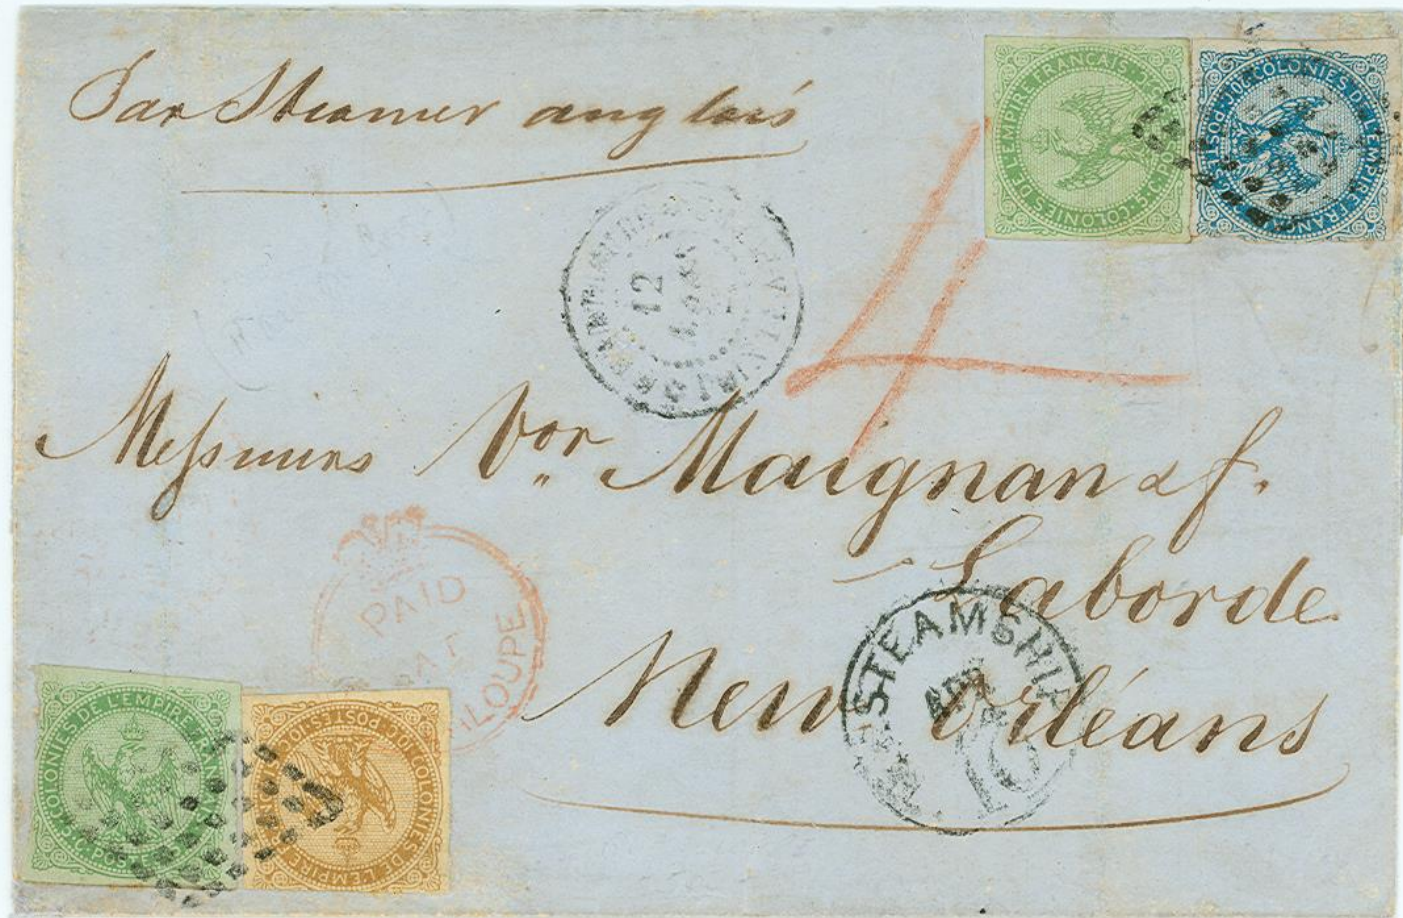 Par Steamer anglais
COLONIES DE L'EMPIRE FRANÇAIS
COLONIES DE L'EMPIRE FRANC
POSTES 20C
12
4
Messieurs Vor Maignan & f.
Laborde
New Orléans
PAID
LOUPE
STEAMSHIP
10
COLONIES DE L'EMPIRE FRAN
POSTES
COLONIES DE L'EMPIRE
POSTES 10C